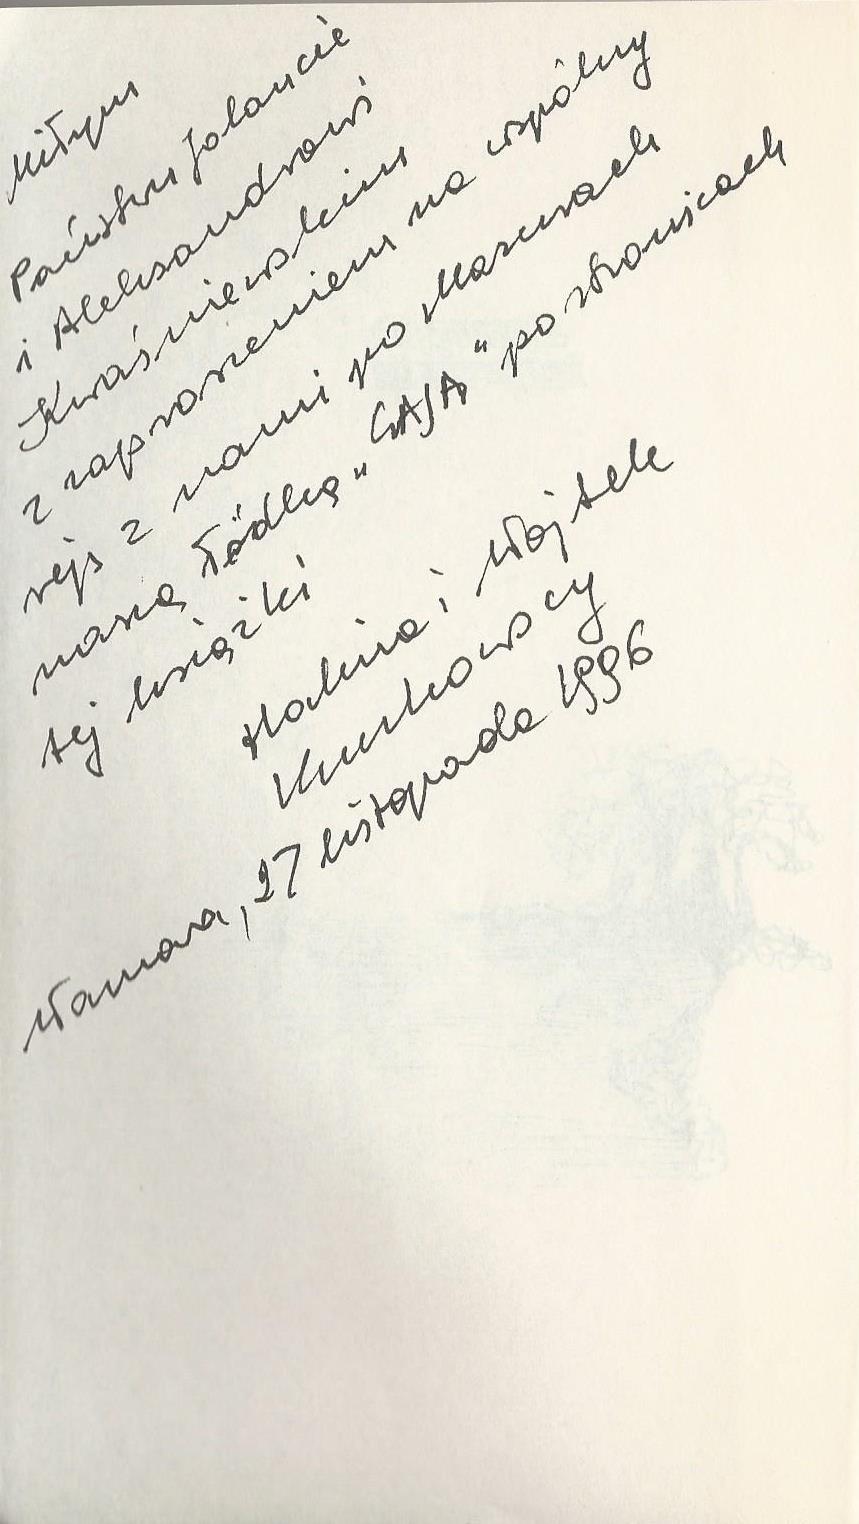 Miłym
Państwu Jolancie
i Aleksandrowi
Kwaśniewskim
z zaproszeniem na wspólny
rejs z nami po Mazurach
naszą łódką „GAJA" po stronicach
tej książki
Halina i Wojtek
Kuczkowscy
27 listopada 1996